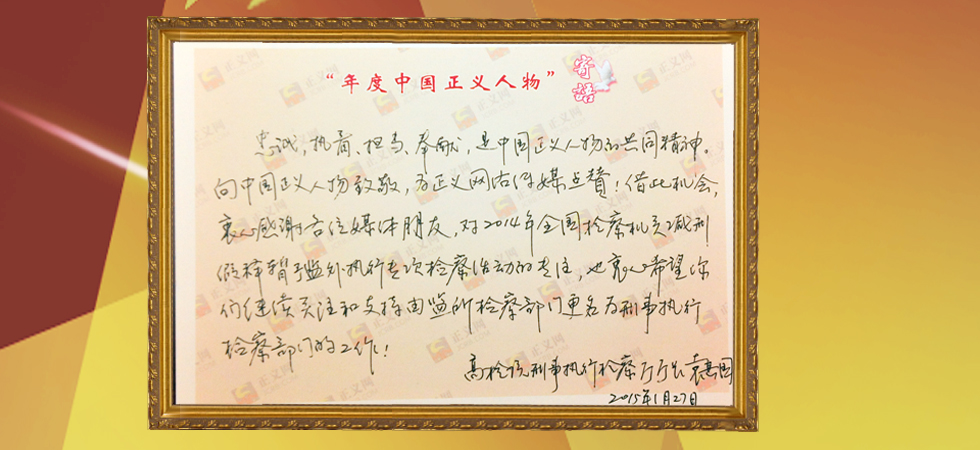 “年度中国正义人物”
寄语
忠诚、执着、担当、奉献，是中国正义人物的共同精神。
向中国正义人物致敬，为正义网法律媒点赞！借此机会，
衷心感谢各位媒体朋友，对2014年全国检察机关减刑
假释暂予监外执行专项检察活动的关注，也衷心希望你
们继续关注和支持由监所检察部门更名为刑事执行
检察部门的工作！
高检院刑事执行检察厅厅长 袁其国
2015年1月27日